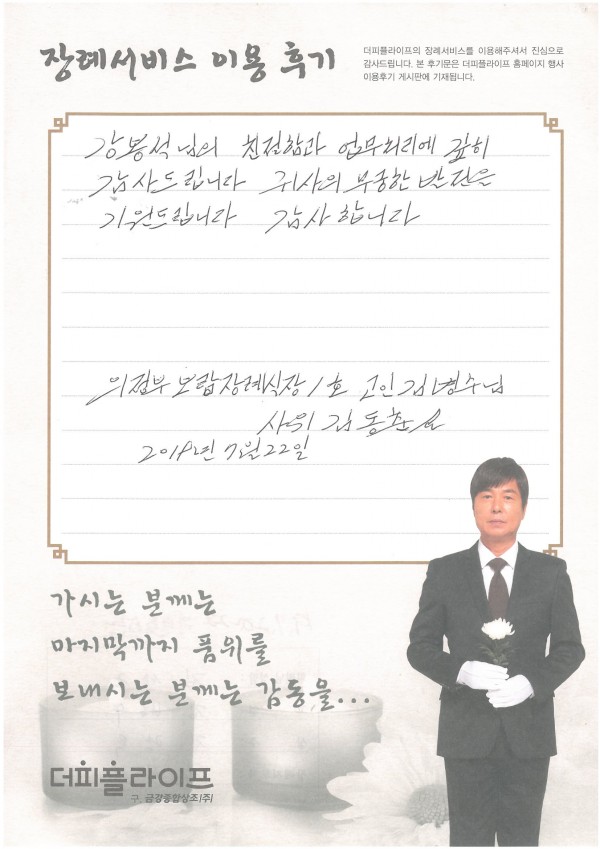 장례서비스 이용 후기
더피플라이프의 장례서비스를 이용해주셔서 진심으로
감사드립니다. 본 후기문은 더피플라이프 홈페이지 행사
이용후기 게시판에 기재됩니다.
강봉석님의 친절함과 업무처리에 깊히
감사드립니다 귀사의 무궁한 발전을
기원드립니다 감사합니다
의정부 보람장례식장 1호 고인 김병수님
사위 김동환
2018년 7월 22일
가시는 분께는
마지막까지 품위를
보내시는 분께는 감동을...
더피플라이프
구. 금경종합상조(주)